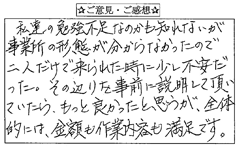 ☆ご意見・ご感想☆
私達の勉強不足なのかも知れないが
事業所の形態が分からなかったので
二人だけで来られた時に少し不安だ
った。その辺りを事前に説明して頂い
ていたら、もっと良かったと思うが、全体
的には、金額も作業内容も満足です。